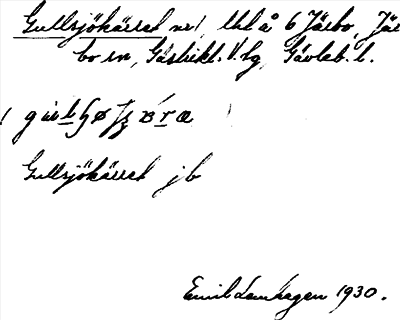 Gullsjökärret nr 1, tkl å 6 Järbo, Jär
bo sn, Gästrikl. V. tg, Gävleb. l.
Gullsjökärret jb
Emil Lamhagen 1930.